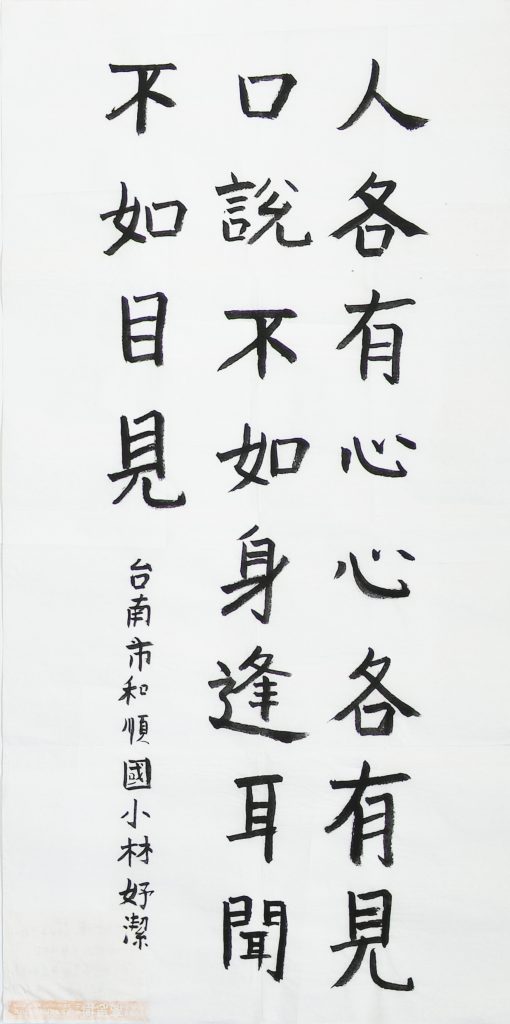 人各有心心各有見
口說不如身逢耳聞
不如目見
台南市和順國小林妤潔